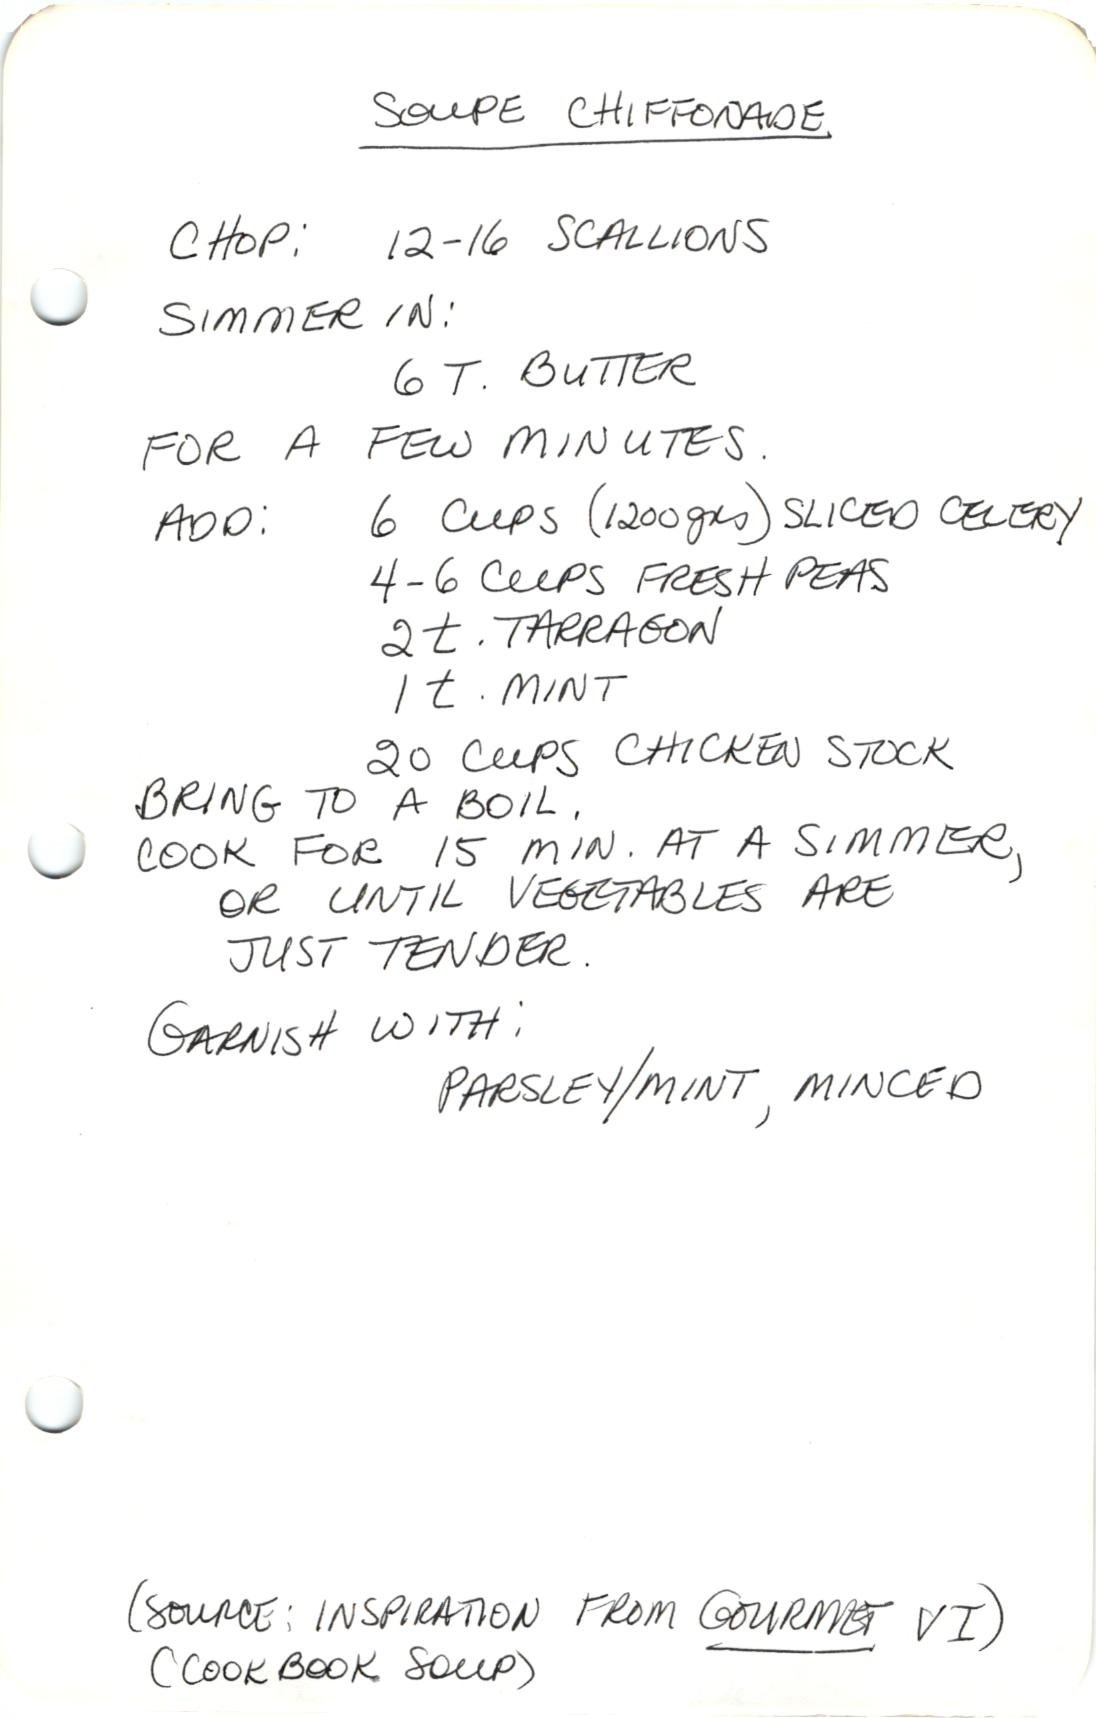 SOUPE CHIFFONADE
CHOP: 12-16 SCALLIONS
SIMMER IN:
6 T. BUTTER
FOR A FEW MINUTES.
ADD: 6 CUPS (1200gms) SLICED CELERY
4-6 CUPS FRESH PEAS
2 t. TARRAGON
1 t. MINT
20 CUPS CHICKEN STOCK
BRING TO A BOIL.
COOK FOR 15 MIN. AT A SIMMER,
OR UNTIL VEGETABLES ARE
JUST TENDER.
GARNISH WITH:
PARSLEY/MINT, MINCED
(SOURCE: INSPIRATION FROM GOURMET VI)
(COOKBOOK SOUP)